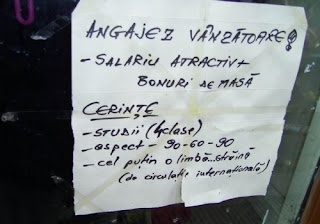 ANGAJEZ VÂNZĂTOARE!
- SALARIU ATRACTIV +
BONURI DE MASĂ
CERINȚE
- STUDII (4 clase)
- aspect - 90-60-90
- cel puțin o limbă străină
(de circulație internațională)